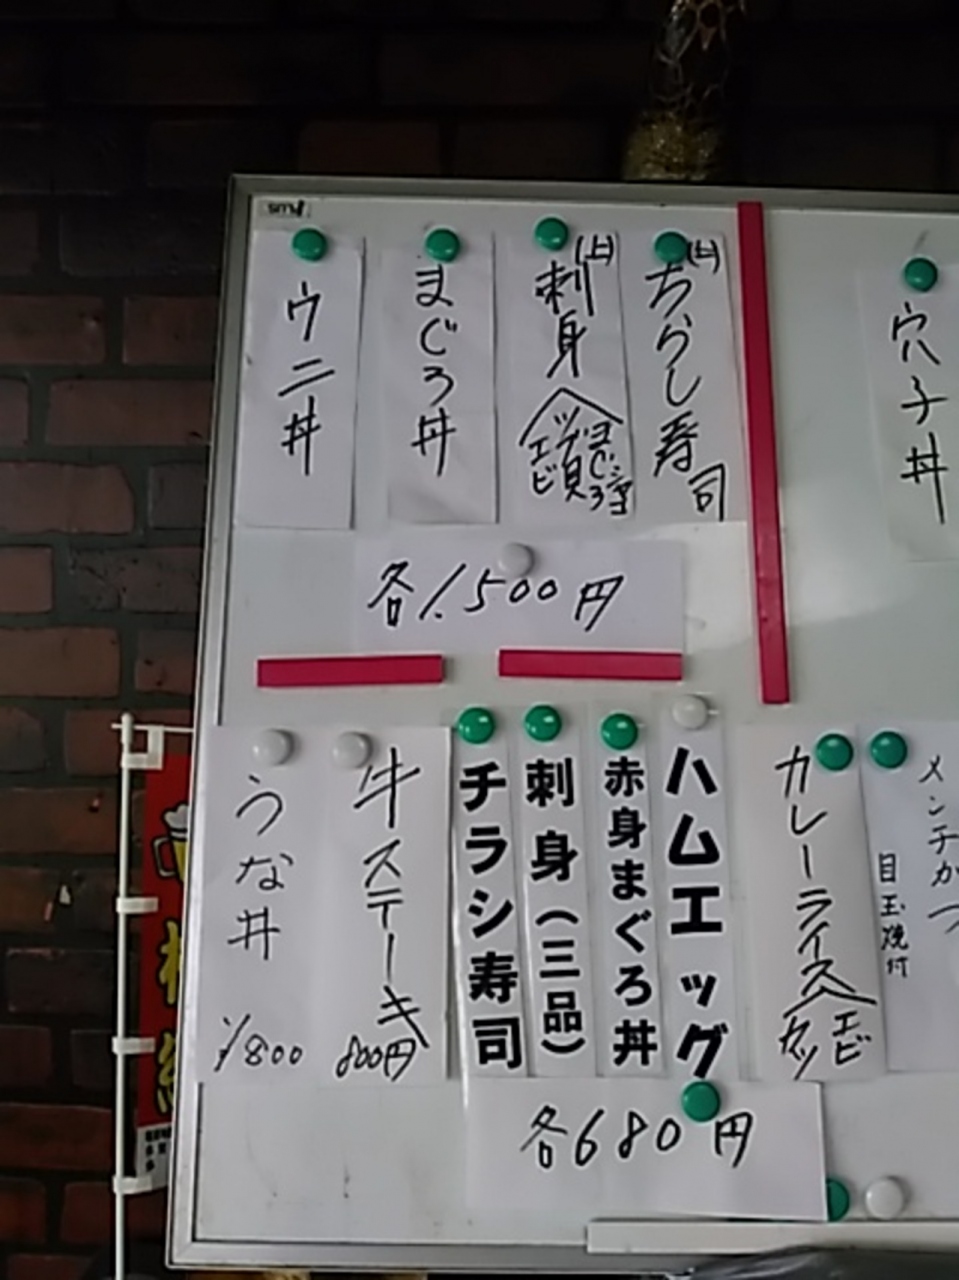 (上)ちらし寿司
(上)刺身
エビ
まぐろ丼
ウニ丼
各1.500円
穴子丼
メンチかつ
目玉焼付
カレーライス
エビ
カツ
ハムエッグ
赤身まぐろ丼
刺身(三品)
チラシ寿司
各680円
牛ステーキ
800円
うな丼
¥800